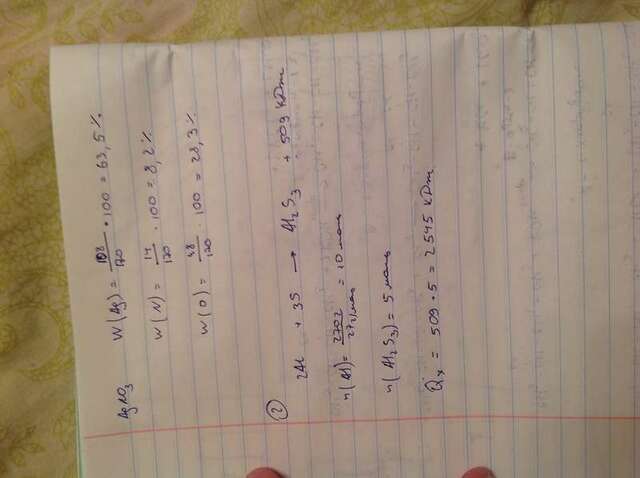 AgNO₃ W(Ag) = 108/170 • 100 = 63,5%
W(N) = 14/170 • 100 = 8,2%
W(O) = 48/170 • 100 = 28,3%
② 2Al + 3S → Al₂S₃ + 509 кДж
n(Al) = 270г/27г/моль = 10 моль
n(Al₂S₃) = 5 моль
Qₓ = 509 • 5 = 2545 кДж